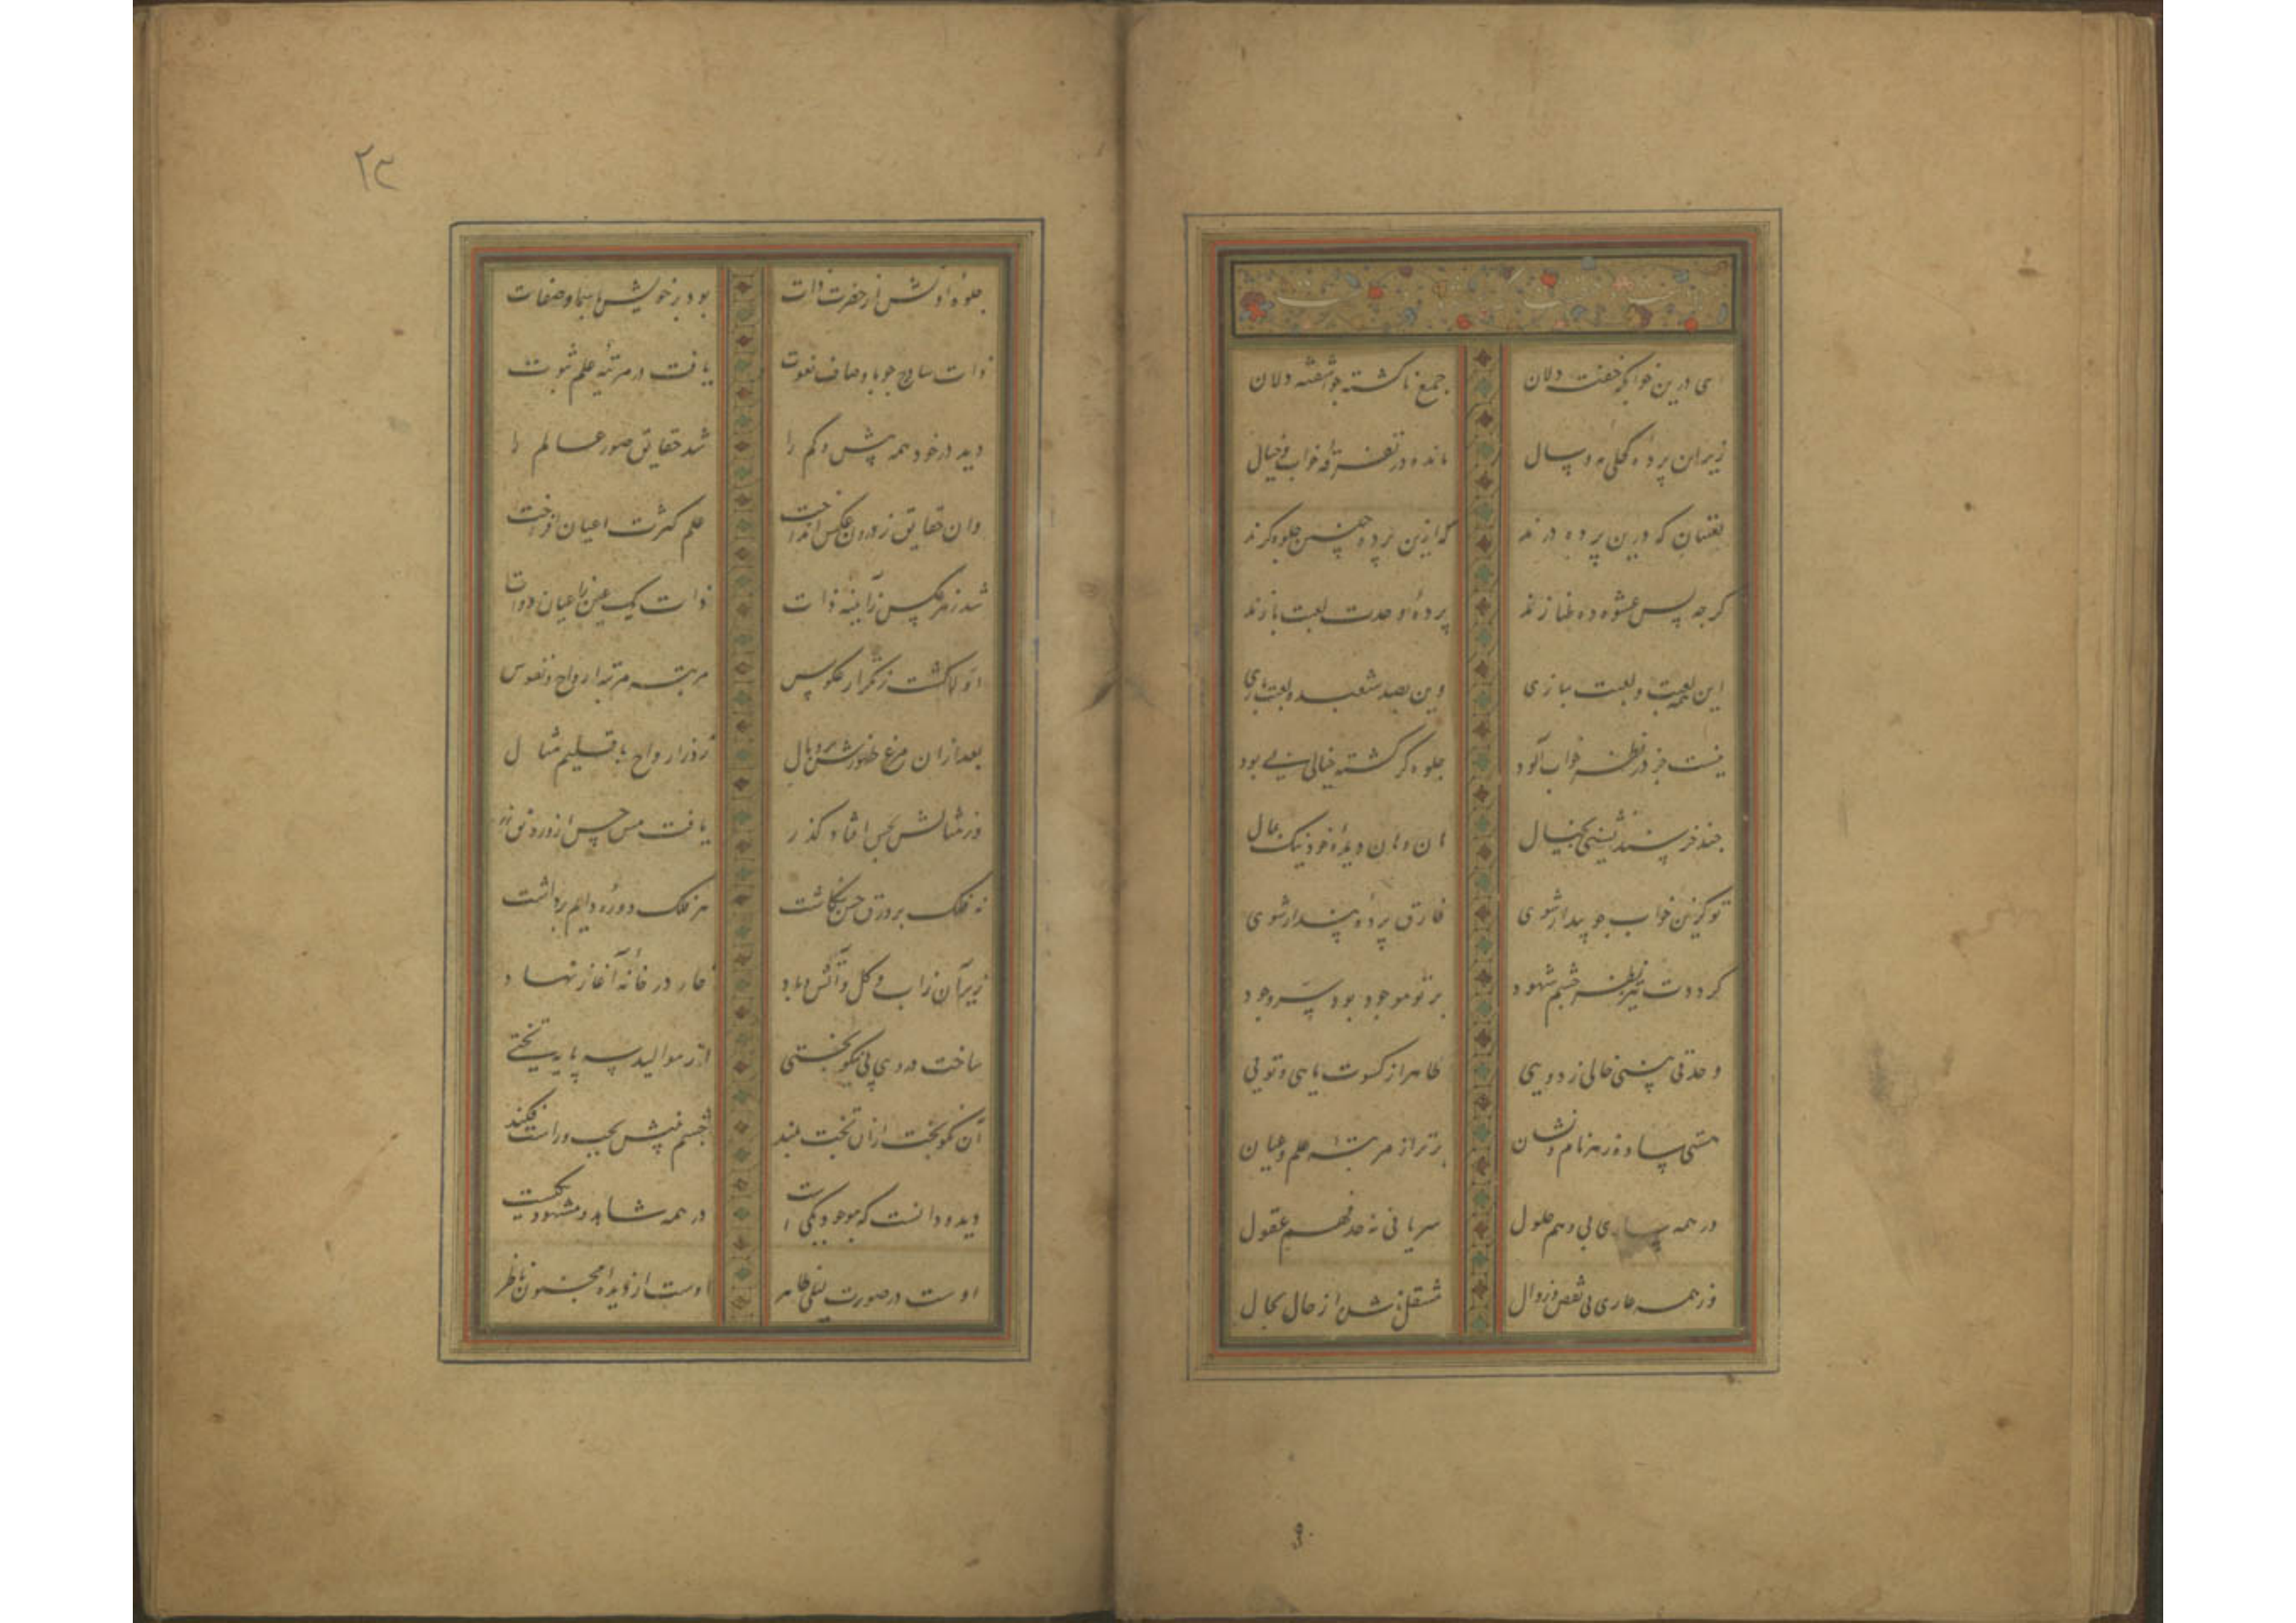 ای درین خوابگه خفته دلان جمع ناکشته جو آشفته دلان
زیر این پرده کحلی مه و سال مانده در تفرقه خواب و خیال
لعبتان که درین پرده درند که ازین پرده چنین جلوه کرند
کرچه پس عشوه ده و طنازند پرده او حدت لعبت بازند
این همه لعبت و لعبت بازی وین بصد شعبده لعبت بازی
نیست جز در نظر خواب آلود جلوه کر کشته خیالی بی بود
چند خرسند نشینی بخیال هان و هان دیده خود نیک بمال
تو کزین خواب جو بیدار شوی فارق پرده پندار شوی
کرددت تیز نظر چشم شهود بر تو موجود بود سر وجود
وحدتی بینی خالی ز دویی ظاهر از کسوت مایی و تویی
هستی ساده ز هر نام و نشان برتر از مرتبه علم و عیان
در همه ساری بی وهم حلول سریانی نه حد فهم عقول
وز همه عاری بی نقص و زوال منتقل نا شده از حال بحال
۹
۲۳
جلوه اولش از حضرت ذات بود بر خویش باسما و صفات
ذات ساذج جو باوصاف نعوت یافت در مرتبه علم ثبوت
دید در خود همه بیش و کم را شد حقایق صور عالم را
وان حقایق ز درون عکس انداخت علم کثرت اعیان افراخت
شد ز هر عکس ز آیینه ذات ذات یک عین ز اعیان ذوات
اولا کشت ز تکرار عکوس مرتبه مرتبه ارواح و نفوس
بعد ازان مرغ ظهورش پر و بال زد ز ارواح باقلیم مثال
وز مثالش بحس افتاد کذر یافت مس حس ازو رونق زر
نه فلک بر ورق حس بنکاشت هر فلک دوره دایم برداشت
زیر آن زاب و کل و آتش و باد چار در خانه آغاز نهاد
ساخت در وی پی نیکو بختی از موالید سه پایه تختی
آن نکوبخت ازان تخت بلند چشم بینش بچب و راست فکند
دید و دانست که موجود یکی است در همه شاهد و مشهود یکیست
اوست در صورت لیلی ظاهر اوست از دیده مجنون ناظر